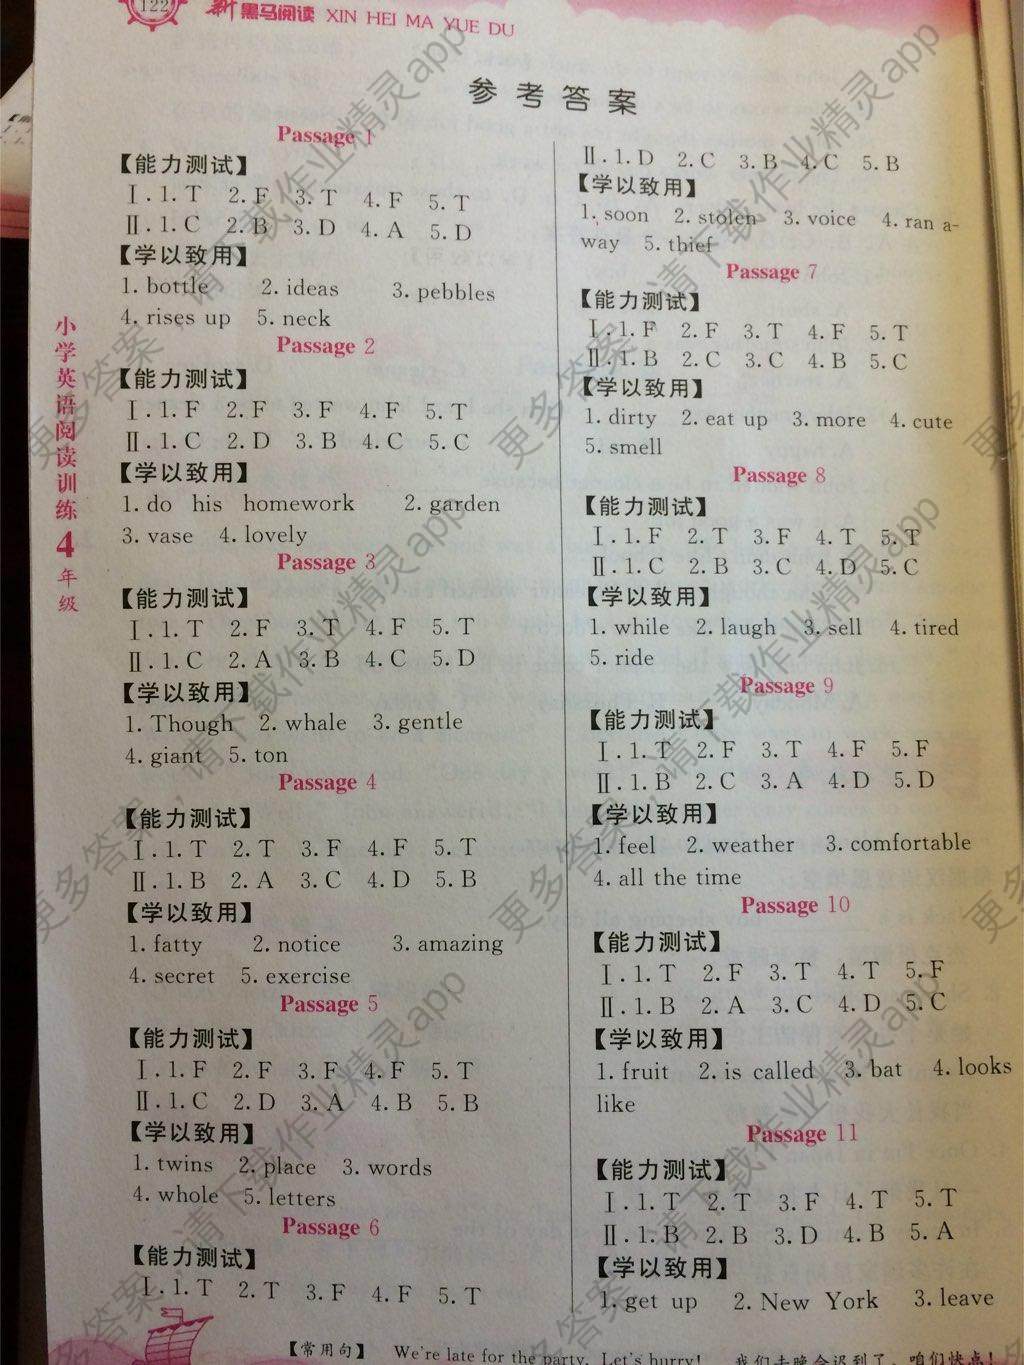 122 新黑马阅读 XIN HEI MA YUE DU
参考答案
小学英语阅读训练4年级
Passage 1
【能力测试】
Ⅰ.1.T 2.F 3.T 4.F 5.T
Ⅱ.1.C 2.B 3.D 4.A 5.D
【学以致用】
1. bottle 2. ideas 3. pebbles
4. rises up 5. neck
Passage 2
【能力测试】
Ⅰ.1.F 2.F 3.F 4.F 5.T
Ⅱ.1.C 2.D 3.B 4.C 5.C
【学以致用】
1. do his homework 2. garden
3. vase 4. lovely
Passage 3
【能力测试】
Ⅰ.1.T 2.F 3.T 4.F 5.T
Ⅱ.1.C 2.A 3.B 4.C 5.D
【学以致用】
1. Though 2. whale 3. gentle
4. giant 5. ton
Passage 4
【能力测试】
Ⅰ.1.T 2.T 3.F 4.F 5.T
Ⅱ.1.B 2.A 3.C 4.D 5.B
【学以致用】
1. fatty 2. notice 3. amazing
4. secret 5. exercise
Passage 5
【能力测试】
Ⅰ.1.F 2.F 3.F 4.F 5.T
Ⅱ.1.C 2.D 3.A 4.B 5.B
【学以致用】
1. twins 2. place 3. words
4. whole 5. letters
Passage 6
【能力测试】
Ⅰ.1.T 2.T 3.F 4.F 5.T
Ⅱ.1.D 2.C 3.B 4.C 5.B
【学以致用】
1. soon 2. stolen 3. voice 4. ran a-
way 5. thief
Passage 7
【能力测试】
Ⅰ.1.F 2.F 3.T 4.F 5.T
Ⅱ.1.B 2.C 3.C 4.B 5.C
【学以致用】
1. dirty 2. eat up 3. more 4. cute
5. smell
Passage 8
【能力测试】
Ⅰ.1.F 2.T 3.F 4.T 5.T
Ⅱ.1.C 2.B 3.C 4.D 5.C
【学以致用】
1. while 2. laugh 3. sell 4. tired
5. ride
Passage 9
【能力测试】
Ⅰ.1.T 2.F 3.T 4.F 5.F
Ⅱ.1.B 2.C 3.A 4.D 5.D
【学以致用】
1. feel 2. weather 3. comfortable
4. all the time
Passage 10
【能力测试】
Ⅰ.1.T 2.F 3.T 4.T 5.F
Ⅱ.1.B 2.A 3.C 4.D 5.C
【学以致用】
1. fruit 2. is called 3. bat 4. looks
like
Passage 11
【能力测试】
Ⅰ.1.T 2.T 3.F 4.T 5.T
Ⅱ.1.B 2.B 3.D 4.B 5.A
【学以致用】
1. get up 2. New York 3. leave
【常用句】 We're late for the party. Let's hurry! 我们去晚会迟到了，咱们快点！
更多答案，请下载作业精灵app
更多答案，请下载作业精灵app
更多答案，请下载作业精灵app
更多答案，请下载作业精灵app